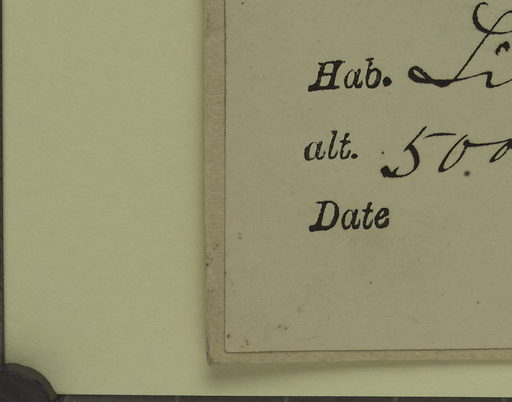 Hab.
alt. 500
Date